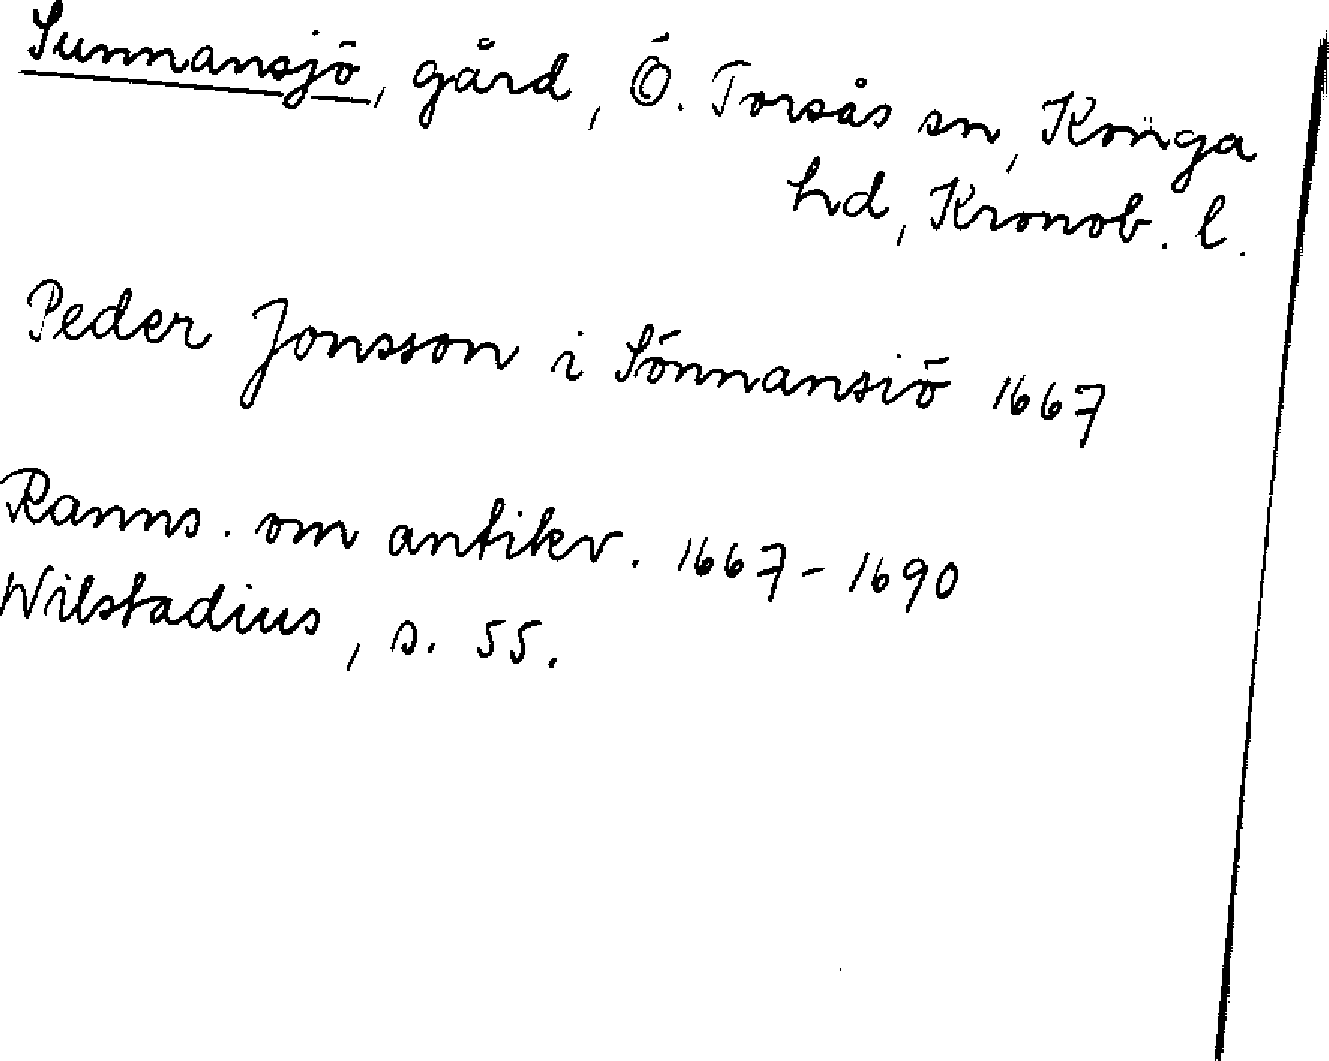 Sunnansjö, gård, Ö. Torsås sn, Konga
hd, Kronob. l.
Peder Jonsson i Sönnansiö 1667
Ranns. om antikv. 1667-1690
Wilstadius, s. 55.